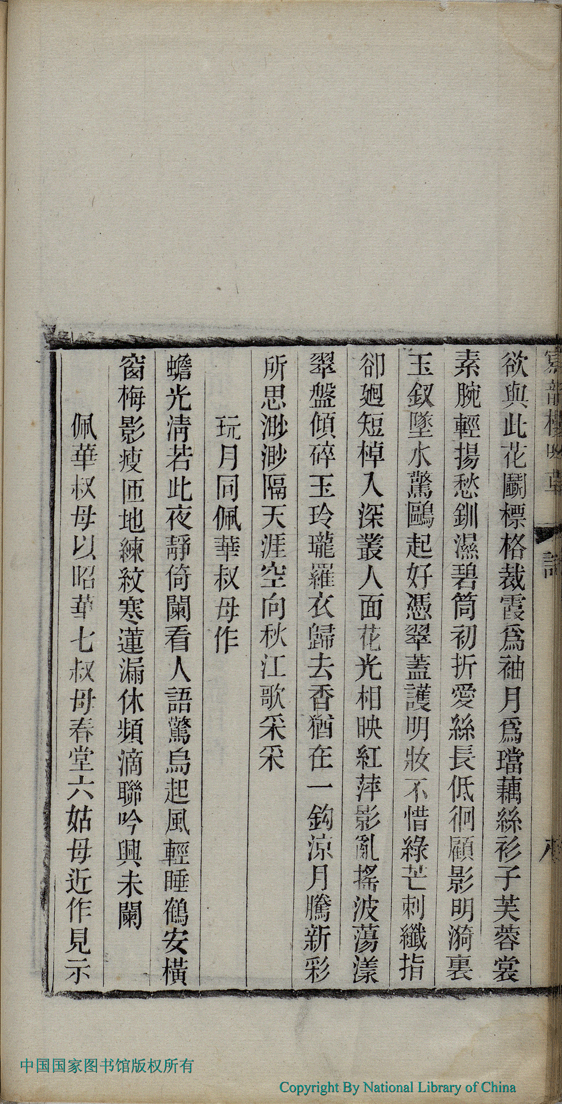 欲與此花鬭標格裁霞爲袖月爲璫藕絲衫子芙蓉裳
素腕輕揚愁釧濕碧筒初折愛絲長低徊顧影明漪裏
玉釵墜水驚鷗起好憑翠蓋護明妝不惜綠芒刺纖指
卻廻短棹入深叢人面花光相映紅萍影亂搖波蕩漾
翠盤傾碎玉玲瓏羅衣歸去香猶在一鈎涼月騰新彩
所思渺渺隔天涯空向秋江歌采采
玩月同佩華叔母作
蟾光清若此夜靜倚闌看人語驚烏起風輕睡鶴安橫
窗梅影瘦匝地練紋寒蓮漏休頻滴聯吟興未闌
佩華叔母以昭華七叔母春堂六姑母近作見示
中国国家图书馆版权所有
Copyright By National Library of China